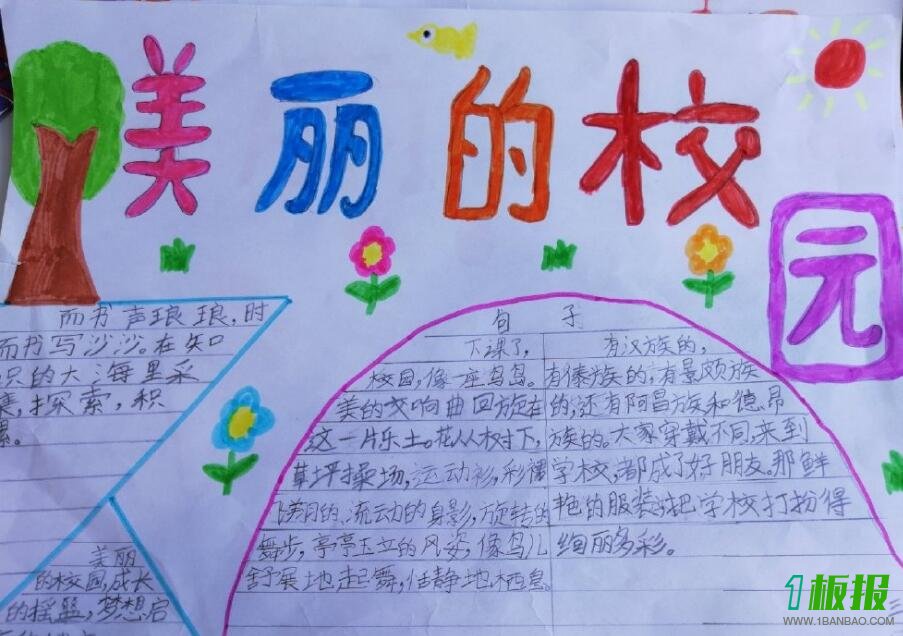 美丽的校园
而书声琅琅，时
而书写沙沙。在知
识的大海里采
，探索，积
累。
美丽
的校园，成长
的摇篮，梦想启
句子
下课了，
校园，像一座鸟岛。
美的交响曲回旋在
这一片乐土。花丛树下，
草坪操场，运动衫，彩裙
流动的身影，旋转的
舞步，亭亭玉立的风姿，像鸟儿
舒展地起舞，恬静地栖息。
有汉族的，
有傣族的，有景颇族
的，还有阿昌族和德昂
族的。大家穿戴不同，来到
学校，都成了好朋友。那鲜
艳的服装，把学校打扮得
绚丽多彩。
1板报
WWW.1BANBAO.COM